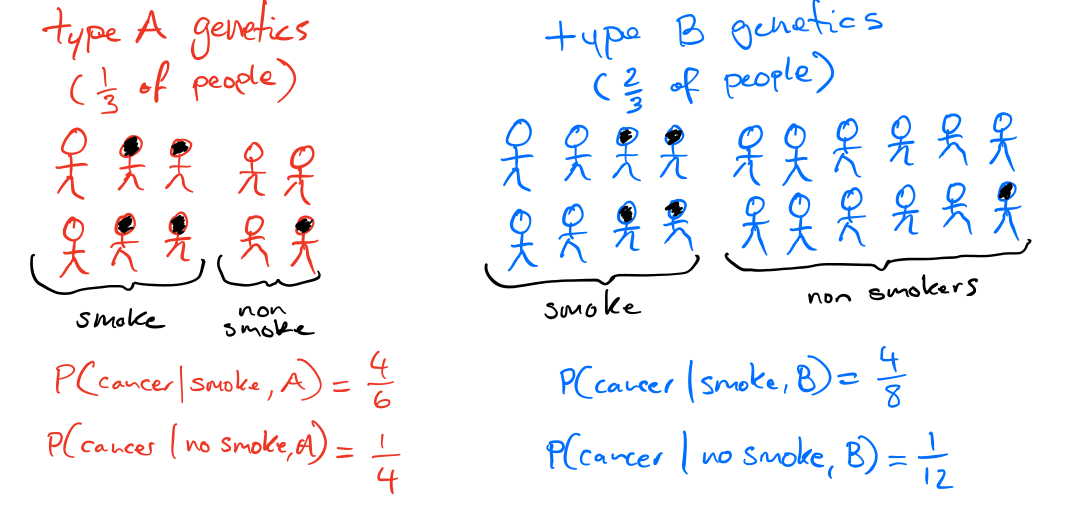 type A genetics
(1/3 of people)
smoke
non
smoke
P(cancer|smoke, A) = 4/6
P(cancer | no smoke, A) = 1/4
type B genetics
(2/3 of people)
smoke
non smokers
P(cancer | smoke, B) = 4/8
P(cancer | no smoke, B) = 1/12